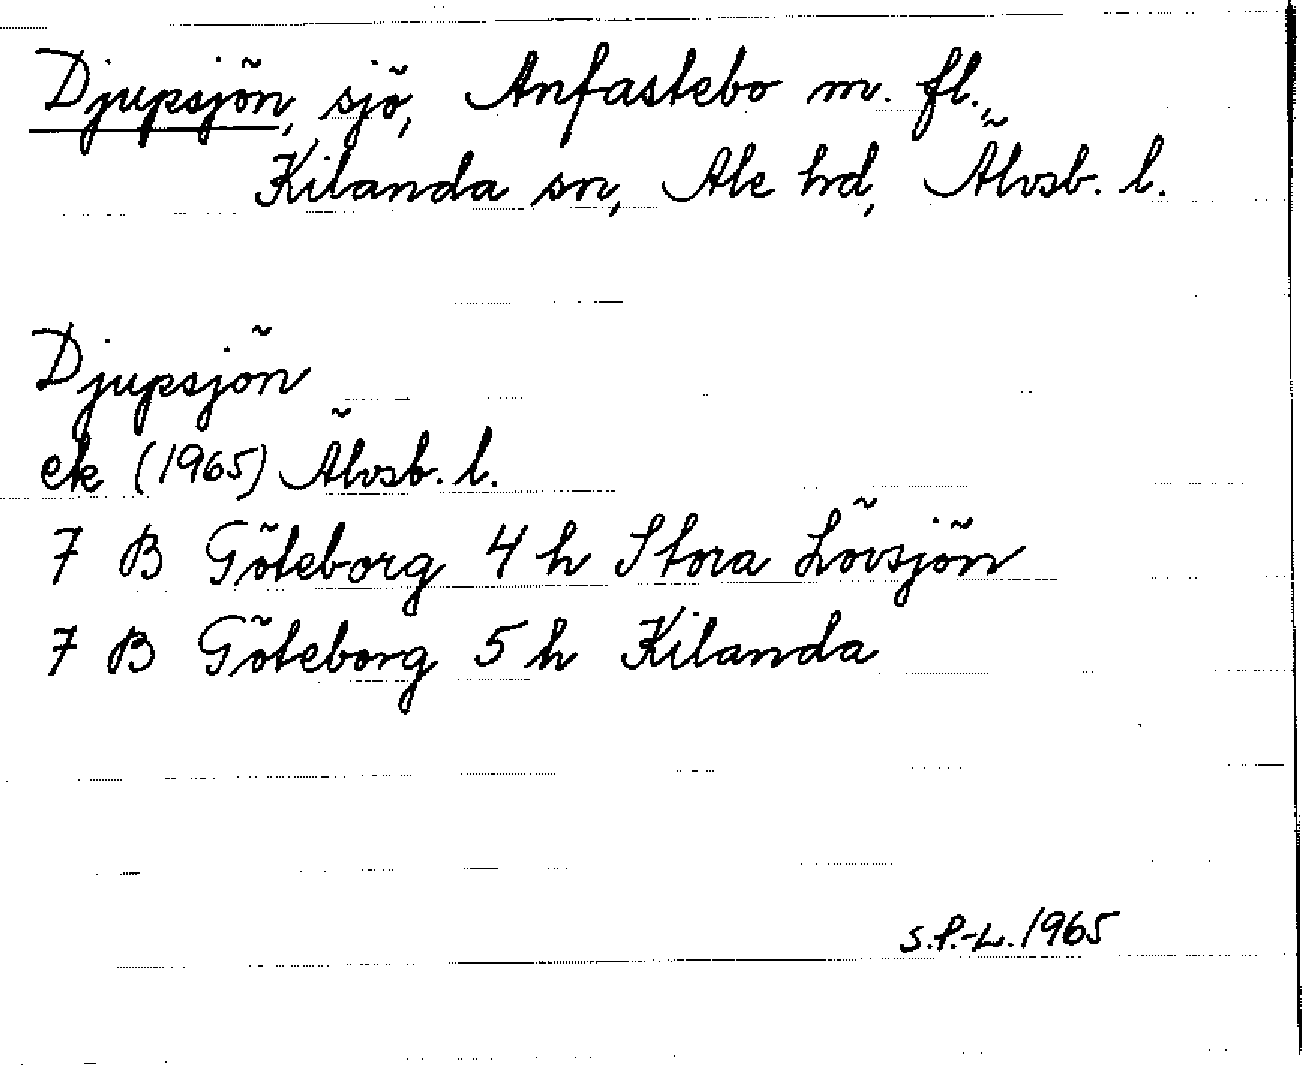 Djupsjön, sjö, Anfastebo m. fl.,
Kilanda sn, Ale hd, Älvsb. l.
Djupsjön
ek (1965) Älvsb. l.
7 B Göteborg 4 h Stora Lövsjön
7 B Göteborg 5 h Kilanda
S.P.-L. 1965